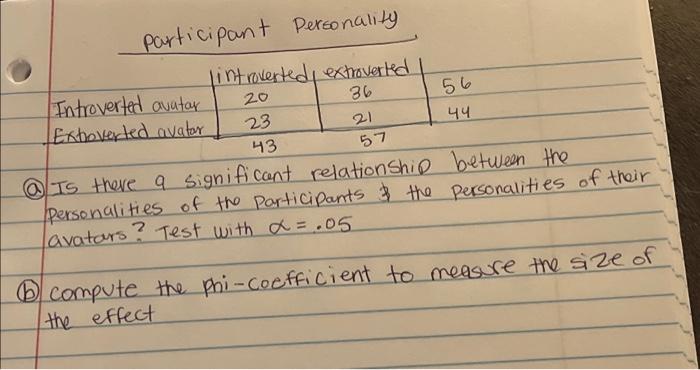 participant Personality
introverted extroverted
Introverted avatar 20 36 56
Extroverted avatar 23 21 44
43 57
ⓐ Is there a significant relationship between the
personalities of the participants & the personalities of their
avatars? Test with α = .05
ⓑ compute the phi-coefficient to measure the size of
the effect